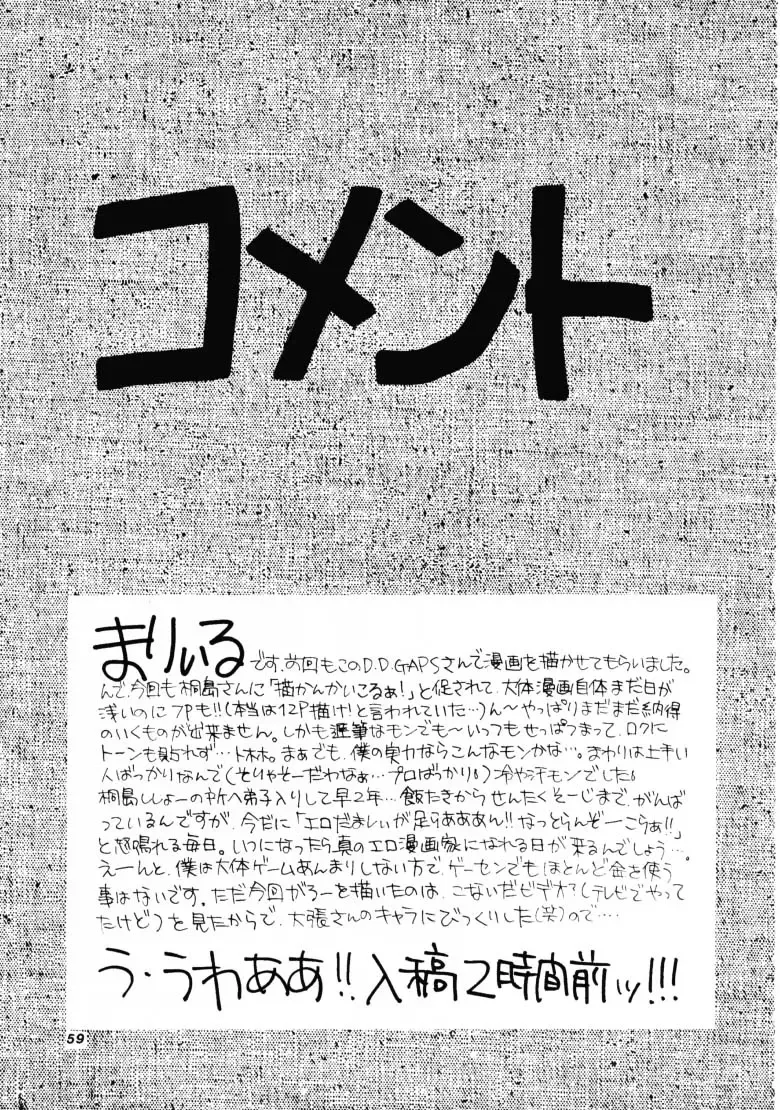 コメント
まりぃる です。前回もこのD.D.GAPSさんで漫画を描かせてもらいました。
んで、今回も桐島さんに「描かんかいこるぁ!」と促されて、大体漫画自体まだ日が
浅いのに7Pも!!(本当は12P描け!と言われていた…)ん〜やっぱりまだまだ納得
のいくものが出来ません。しかも遅筆なモンでも〜いっつもせっぱつまって、ロクに
トーンも貼れず…トホホ。まぁでも、僕の実力ならこんなモンかな…。まわりは上手い
人ばっかりなんで(そりゃそーだわなぁ…プロばっかり)冷や汗モンでした
桐島ししょーの所へ弟子入りして早2年…飯たきからせんたくそーじまで、がんば
っているんですが、今だに「エロだましいが足りぁあああん!!なっとらんぞーーこらぁ!!」
と怒鳴れる毎日。いつになったら真のエロ漫画家になれる日が来るんでしょう…。
えーんと、僕は大体ゲームあんまりしない方で、ゲーセンでもほとんど金を使う
事はないです。ただ今回がろーを描いたのは、こないだビデオ?(テレビでやって
たけど)を見たからで、大張さんのキャラにびっくりした(笑)ので‥‥
う・うわぁああ!!入稿2時間前ッ!!!
59